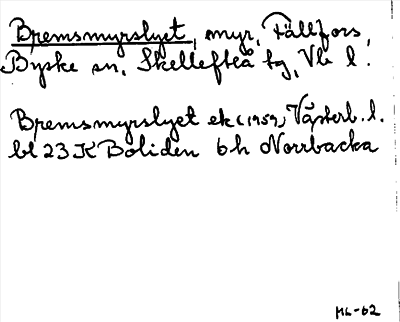 Bremsmyrslyet, myr, Fällfors,
Byske sn, Skellefteå tg, Vb l.
Bremsmyrslyet ek (1959) Västerb. l.
bl 23 K Boliden 6 h Norrbacka
ML-62